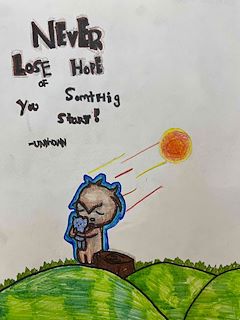 NEVER
LOSE HOPE
OF
You SomtHig
START!
-UNKNOWN